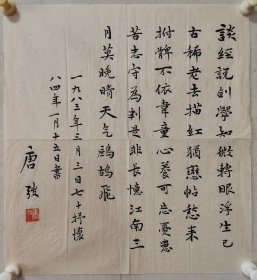 談經說劍學知緻轉眼浮生已
古稀老去描紅猶戀帖愁来
拊髀不依韋童心養可忘憂患
苦志守為判是非長憶江南三
月莫晚晴天氣鷓鴣飛
一九八三年三月三日七十抒懷
八四年一月十五日書
唐弢